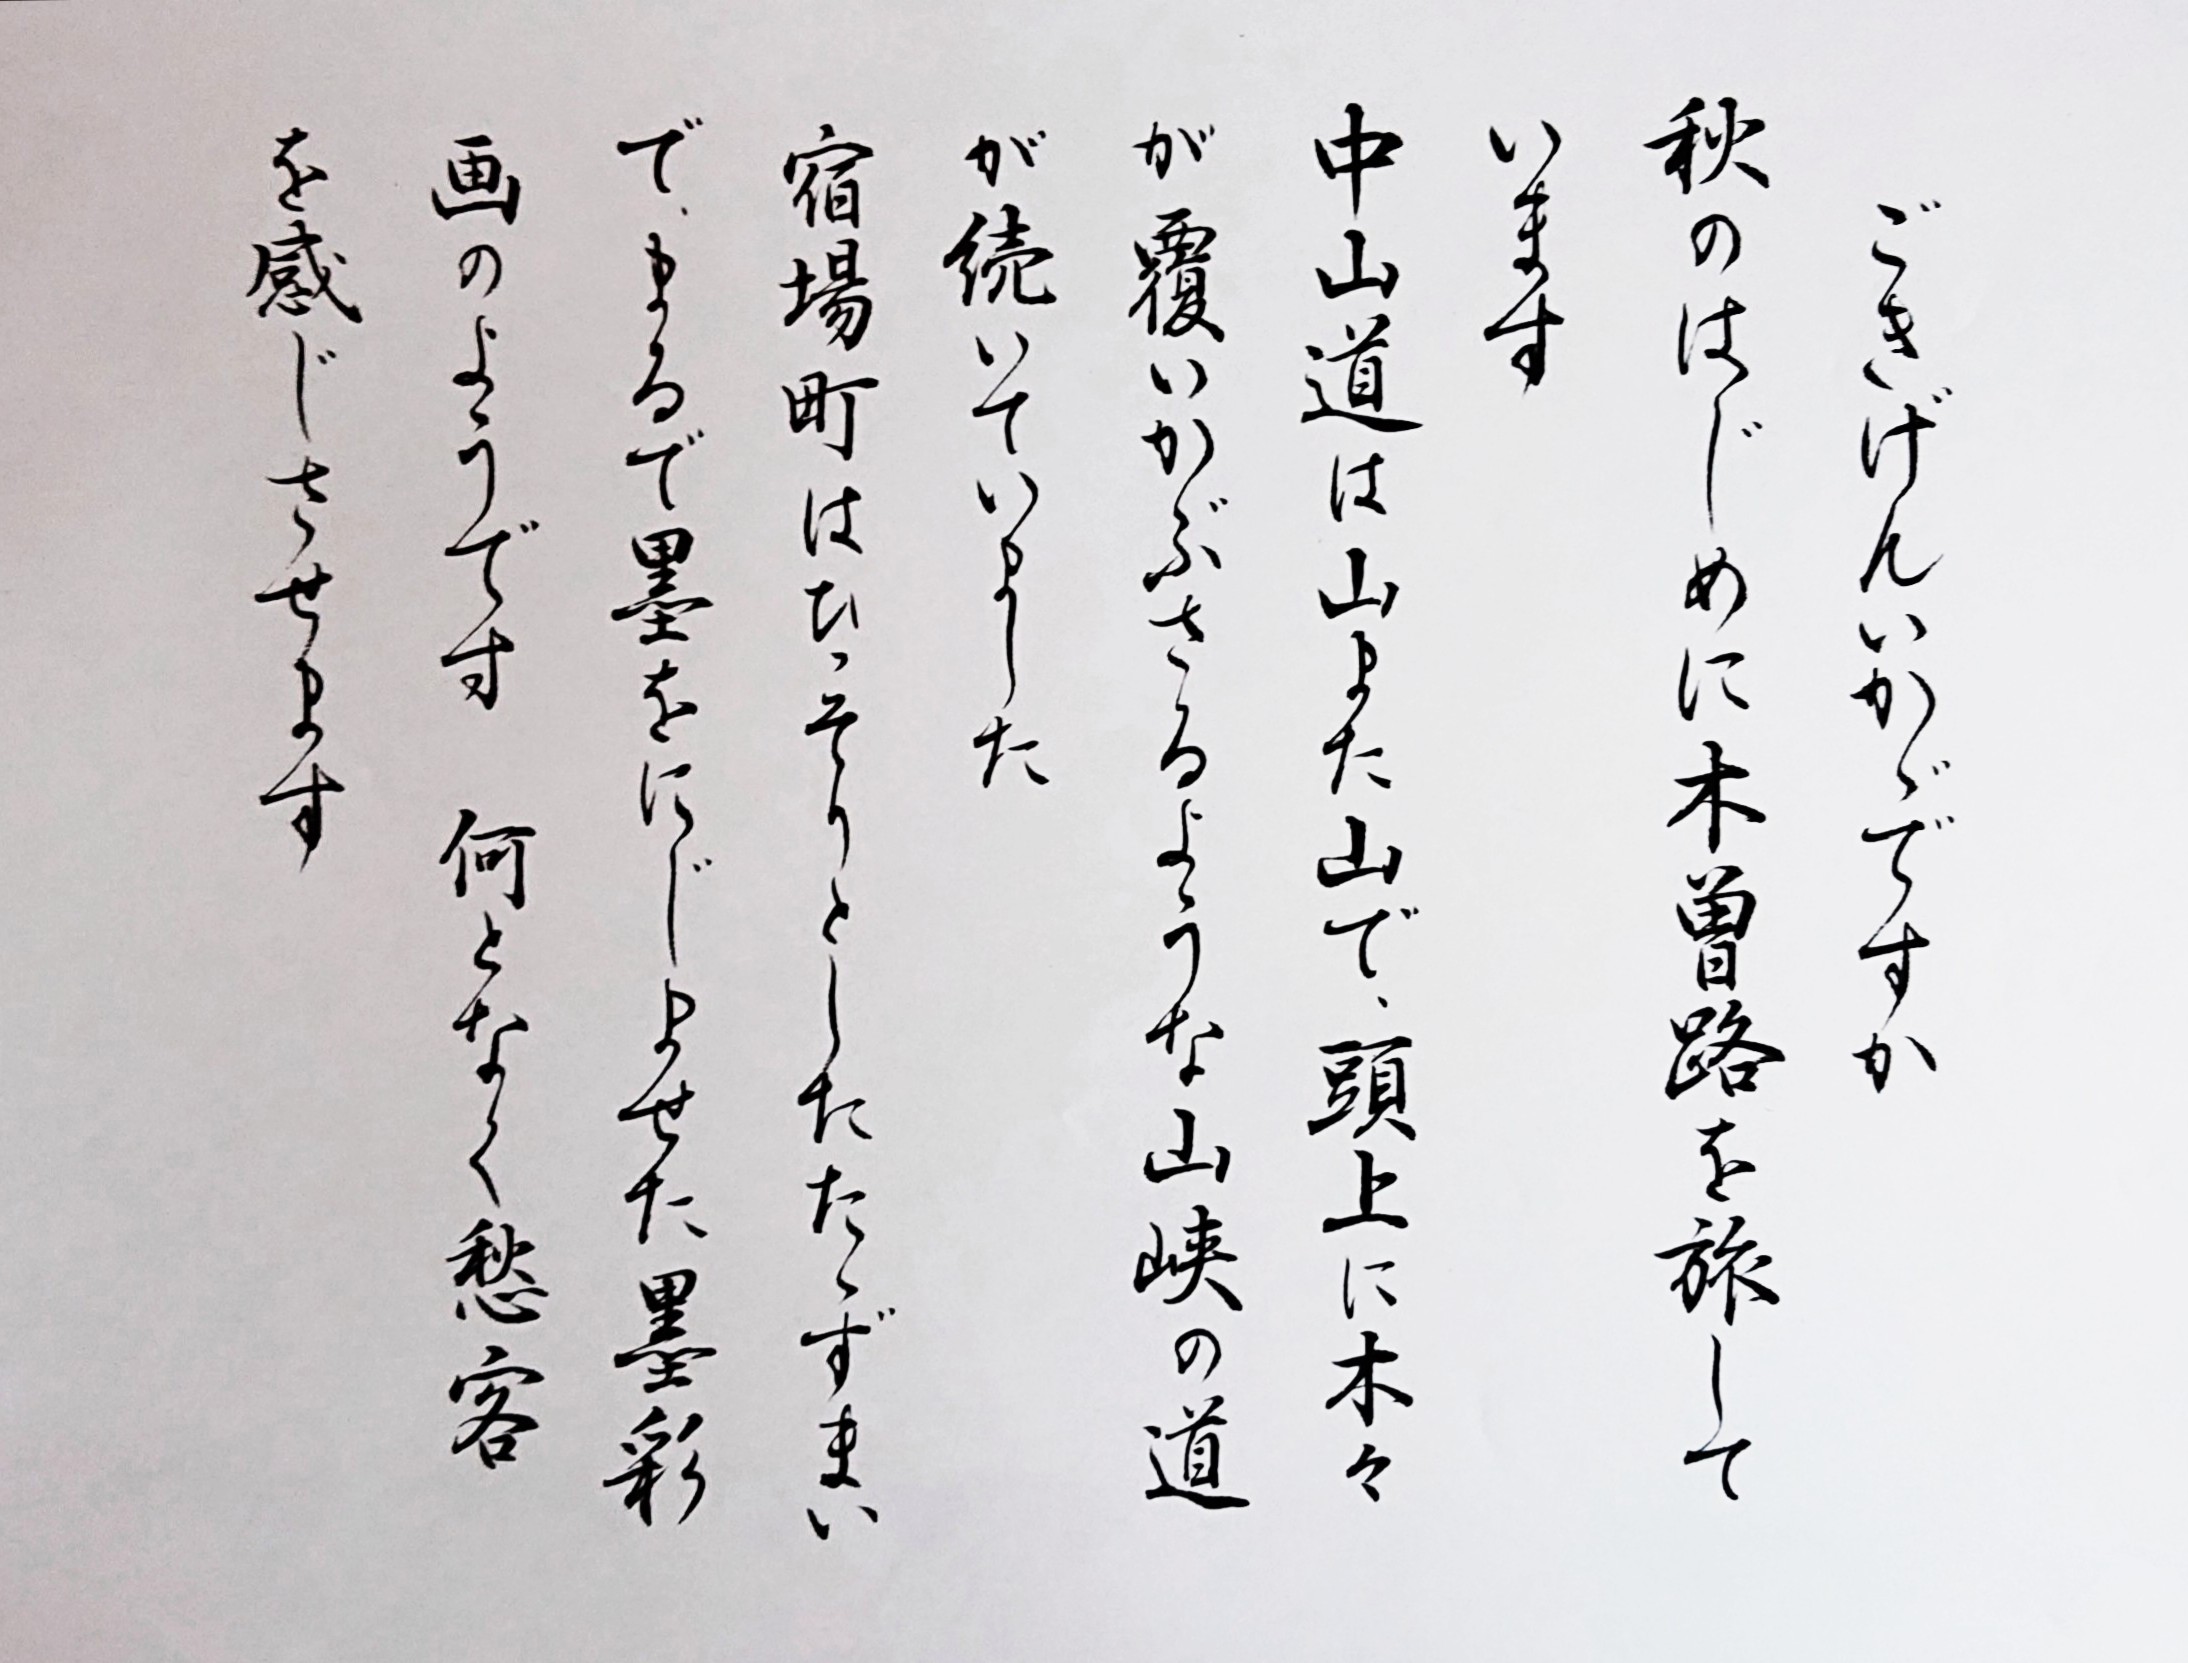 ごきげんいかゞですか
秋のはじめに木曽路を旅して
います
中山道は山また山で、頭上に木々
が覆いかぶさるような山峡の道
が続いていました
宿場町はひっそりとしたたゝずまい
で、まるで墨をにじませた墨彩
画のようです　何となく愁客
を感じさせます